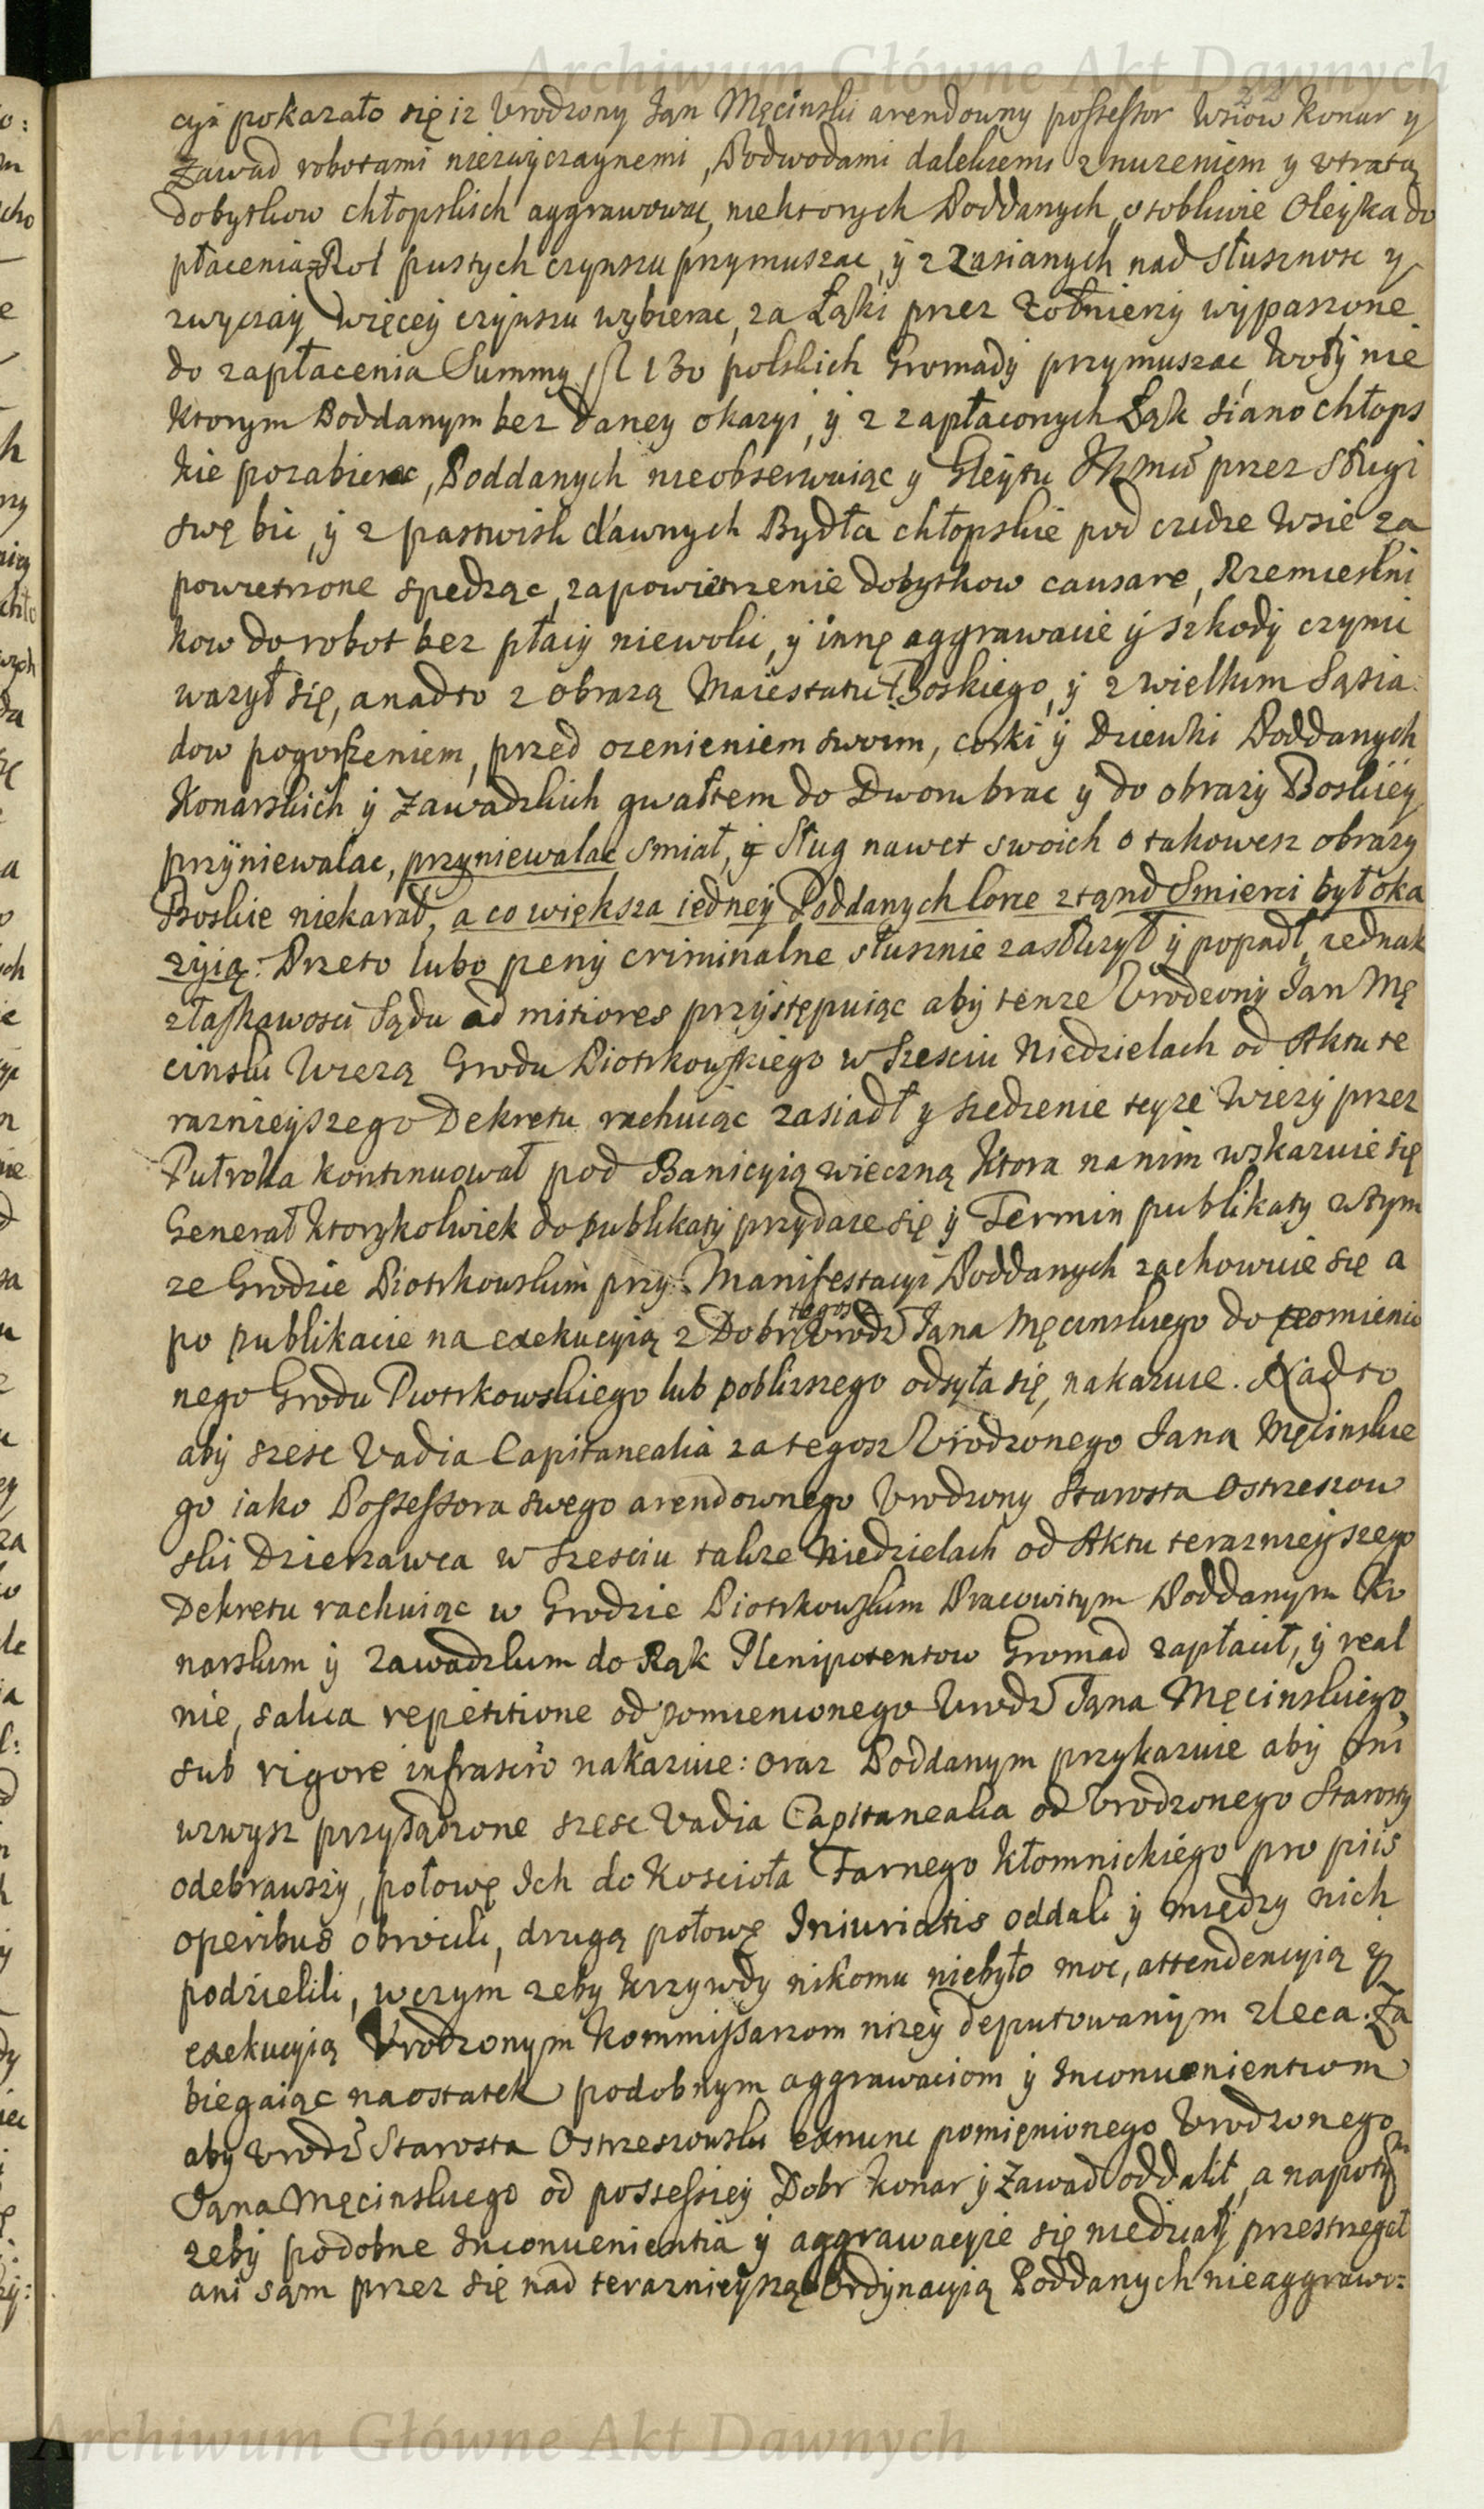 Archiwum Główne Akt Dawnych
cyi pokazało się iz Urodzony Jan Męcinski arendowny possessor Wsiow Konar y
Zawad robotami niezwyczaynemi, Podwodami dalekiemi znuzeniem y utratą
dobytkow chłopskich aggrawować, niektorych Poddanych osobliwie Oleyka do
płacenia z Rol pustych czynszu przymuszac, y z Zasianych nad słusznosc y
zwyczay więcey czynszu wybierac, za Łąki przez Zołnierzy wypaszone
do zapłacenia Summy fl 130 polskich Gromady przymuszac, Woły nie
ktorym Poddanym bez daney okazyi, y z zapłaconych Łąk siano chłops
kie pozabierac, Poddanych nieobserwuiąc y Gleytu przez Sługi
swę bic, y z pastwisk dawnych Bydła chłopskie pod cudze Wsie za
powietrzone spędząc, zapowietrzenie dobytkow causare, Rzemieslni
kow do robot bez płacy niewolic, y innę aggrawacie y szkody czynic
wazył się, a nadto z obrazą Maiestatu Boskiego, y z wielkim Sąsia
dow pogorszeniem, przed ozenieniem swoim, corki y Dziewki Poddanych
Konarskich y Zawadzkich gwałtem do Dworu brac y do obrazy Boskiey
przyniewalac, przyniewalac smiał, y Sług nawet swoich o takowesz obrazy
Boskie niekarał, a co większa iedney Poddanych Corce ztąnd Smierci był oka
zyią: Przeto lubo peny criminalne słusznie zasłuzył y popadł, iednak
złaskawosci Sądu ad mitiores przystępuiąc aby tenze Urodzony Jan Mę
cinski Wiezą Grodu Piotrkowskiego w Szesciu Niedzielach od Aktu te
raznieyszego Dekretu rachuiąc zasiadł y siedzenie teyze Wiezy przez
Puł roka kontinuował pod Banicyią wieczną ktora na nim wskazuie się
Generał ktorykolwiek do publikaty przydaie się y Termin publikaty wtym
ze Grodzie Piotrkowskim przy Manifestacyi Poddanych zachowuie się a
po publikacie na exekucyią z Dobr tegosz Urodz Jana Męcinskiego do pomienio
nego Grodu Piotrkowskiego lub poblizszego odsyła się, nakazuie. Nadto
aby szesc Vadia Capitanealia za tegosz Urodzonego Jana Męcinskie
go iako Possessora swego arendownego Urodzony Starosta Ostrzeszow
ski Dzierzawca w Szesciu takze Niedzielach od Aktu teraznieyszego
Dekretu rachuiąc w Grodzie Piotrkowskim Pracowitym Poddanym Ko
narskim y Zawadzkim do Rąk Plenipotentow Gromad zapłacił, y real
nie, salva repetitione od pomienionego Urodz Jana Męcinskiego,
sub rigore infrascro nakazuie: oraz Poddanym przykazuie aby oni
wzwysz przysądzone szesc Vadia Capitanealia od Urodzonego Starosty
odebrawszy, połowę Ich do Koscioła Farnego Kłomnickiego pro piis
operibus obrocili, drugą połowę Iniuriatis oddali y między nich
podzielili, w czym zeby krzywdy nikomu niebyło moc, attendencyią y
exekucyią Urodzonym Kommissarzom nizey deputowanym zleca. Za
biegaiąc naostatek podobnym aggrawaciom y Inconvenientiom
aby Urodz Starosta Ostrzeszowski exnunc pomienionego Urodzonego
Jana Męcinskiego od possessiey Dobr Konar y Zawad oddalił, a napotym
zeby podobne Inconvenientia y aggrawacyie się niedziały przestrzegał
ani sąm przez się nad teraznieyszą Ordynacyią Poddanych nieaggrawo=
Archiwum Główne Akt Dawnych